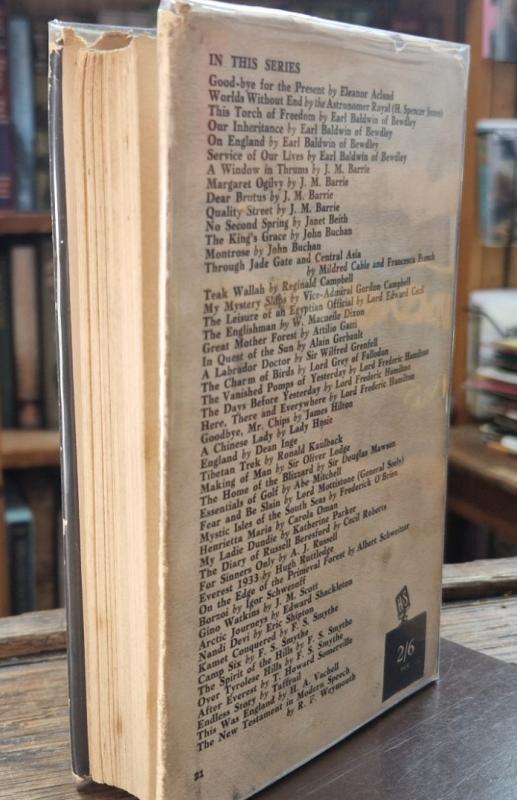 IN THIS SERIES
Good-bye for the Present by Eleanor Acland
Worlds Without End by the Astronomer Royal (H. Spencer Jones)
This Torch of Freedom by Earl Baldwin of Bewdley
Our Inheritance by Earl Baldwin of Bewdley
On England by Earl Baldwin of Bewdley
Service of Our Lives by Earl Baldwin of Bewdley
A Window in Thrums by J. M. Barrie
Margaret Ogilvy by J. M. Barrie
Dear Brutus by J. M. Barrie
Quality Street by J. M. Barrie
No Second Spring by Janet Beith
The King's Grace by John Buchan
Montrose by John Buchan
Through Jade Gate and Central Asia
by Mildred Cable and Francesca French
Teak Wallah by Reginald Campbell
My Mystery Ships by Vice-Admiral Gordon Campbell
The Leisure of an Egyptian Official by Lord Edward Cecil
The Englishman by W. Macneile Dixon
Great Mother Forest by Attilio Gatti
In Quest of the Sun by Alain Gerbault
A Labrador Doctor by Sir Wilfred Grenfell
The Charm of Birds by Lord Grey of Fallodon
The Vanished Pomps of Yesterday by Lord Frederic Hamilton
The Days Before Yesterday by Lord Frederic Hamilton
Here, There and Everywhere by Lord Frederic Hamilton
Goodbye, Mr. Chips by James Hilton
A Chinese Lady by Lady Hosie
England by Dean Inge
Tibetan Trek by Ronald Kaulback
Making of Man by Sir Oliver Lodge
The Home of the Blizzard by Sir Douglas Mawson
Essentials of Golf by Abe Mitchell
Fear and Be Slain by Lord Mottistone (General Seely)
Mystic Isles of the South Seas by Frederick O'Brien
Henrietta Maria by Carola Oman
My Ladie Dundie by Katherine Parker
The Diary of Russell Beresford by Cecil Roberts
For Sinners Only by A. J. Russell
Everest 1933 by Hugh Ruttledge
On the Edge of the Primeval Forest by Albert Schweitzer
Borzoi by Igor Schwezoff
Gino Watkins by J. M. Scott
Arctic Journeys by Edward Shackleton
Nandi Devi by Eric Shipton
Kamet Conquered by F. S. Smythe
Camp Six by F. S. Smythe
The Spirit of the Hills by F. S. Smythe
Over Tyrolese Hills by F. S. Smythe
After Everest by T. Howard Somervell
Endless Story by Taffrail
This Was England by H. A. Vachell
The New Testament in Modern Speech
by R. F. Weymouth
21
2/6